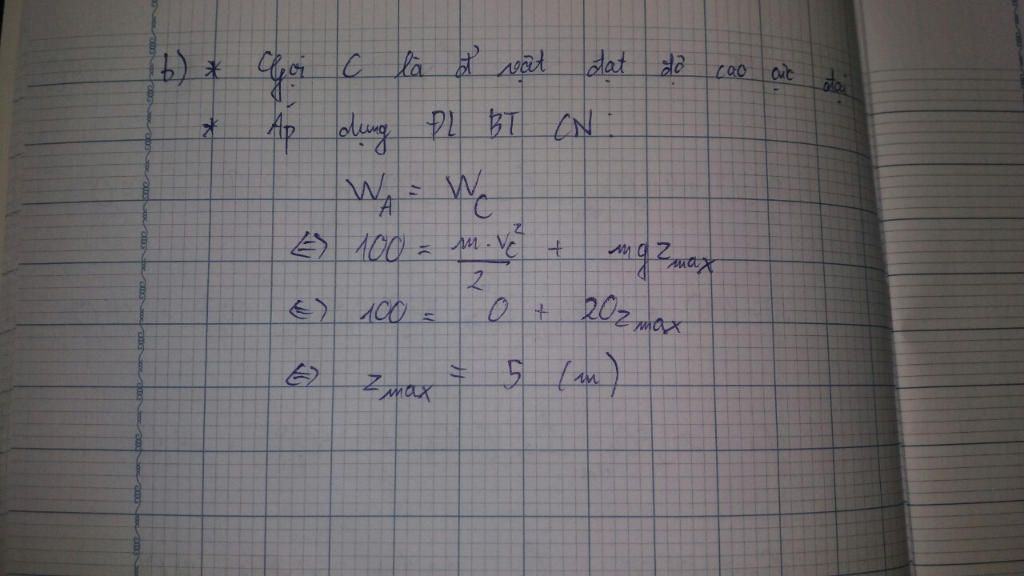 b) * Gọi C là đ' vật đạt độ cao cực đại
* Áp dụng ĐL BT CN:
W_A = W_C
⇔ 100 = m.v_C²/2 + mgz_max
⇔ 100 = 0 + 20z_max
⇔ z_max = 5 (m)